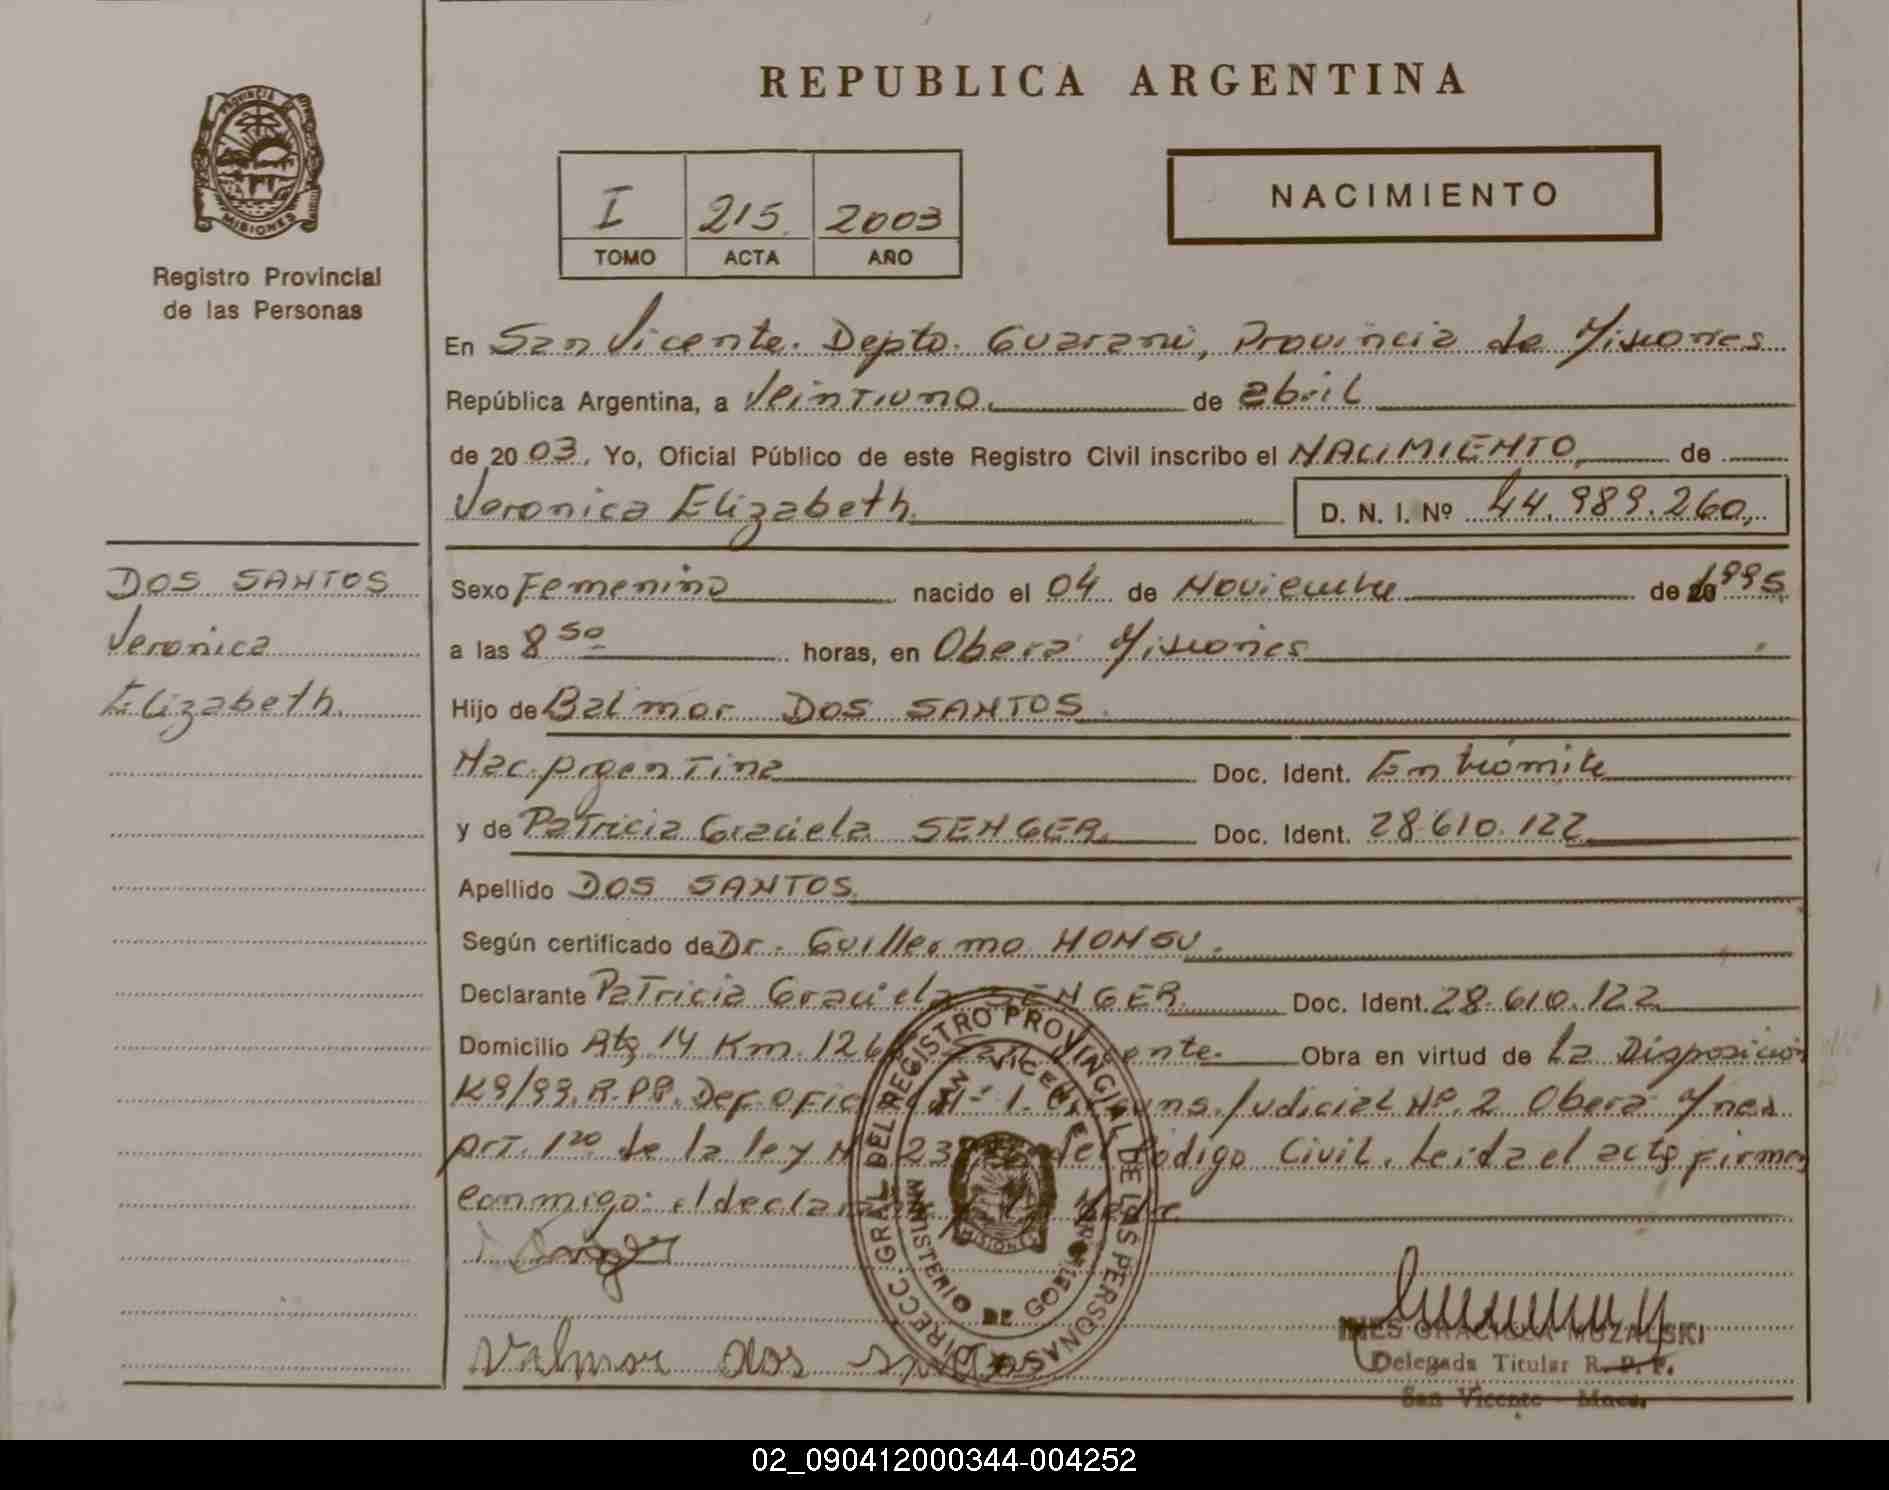 REPUBLICA ARGENTINA
PROVINCIA DE MISIONES
Registro Provincial
de las Personas
I 215 2003
TOMO ACTA AÑO
NACIMIENTO
En San Vicente. Depto. Guarani, Provincia de Misiones
República Argentina, a Veintiuno de abril
de 2003. Yo, Oficial Público de este Registro Civil inscribo el NACIMIENTO, de
Veronica Elizabeth D. N. I. Nº 44.989.260,
DOS SANTOS
Veronica
Elizabeth.
Sexo Femenino nacido el 04 de Noviembre de 1995
a las 8 50 horas, en Obera Misiones
Hijo de Balmor DOS SANTOS.
Nac. Argentina Doc. Ident. En trómite
y de Patricia Graciela SENGER. Doc. Ident. 28.610.122
Apellido DOS SANTOS
Según certificado de Dr. Guillermo
Declarante Patricia Graciela SENGER Doc. Ident. 28.610.122
Domicilio Km. 126 Vicente. Obra en virtud de La Disposición
K9/99. R.P.P. Def. Nº 1. Judicial Nº 2 Obera Mnes
Art. 1ro de la ley Nº 23 del Código Civil. Leida el acta firman
conmigo: el declarante
Valmor dos santos
DIRECC. GRAL DEL REGISTRO PROVINCIAL DE LAS PERSONAS
SAN VICENTE
MINISTERIO DE GOBIERNO
MISIONES
INES GRACIELA MUZALSKI
Delegada Titular R. P. P.
San Vicente - Mnes.
02_090412000344-004252